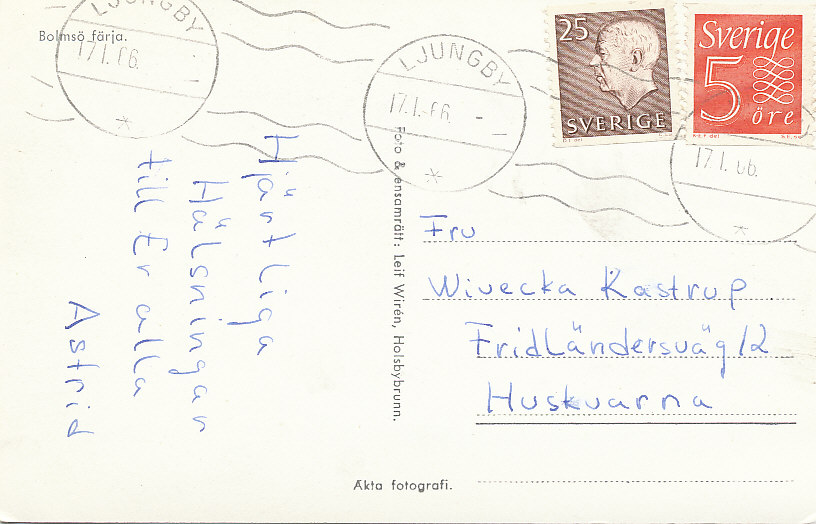 Bolmsö färja.
LJUNGBY
17.1.66.
LJUNGBY
17.1.66.
25
SVERIGE
Sverige
5
öre
17.1.66.
Hjärtliga
Hälsningar
till Er alla
Astrid
Foto & ensamrätt: Leif Wirén, Holsbybrunn.
Fru
Wivecka Kastrup
Fridländersväg 12
Huskvarna
Äkta fotografi.